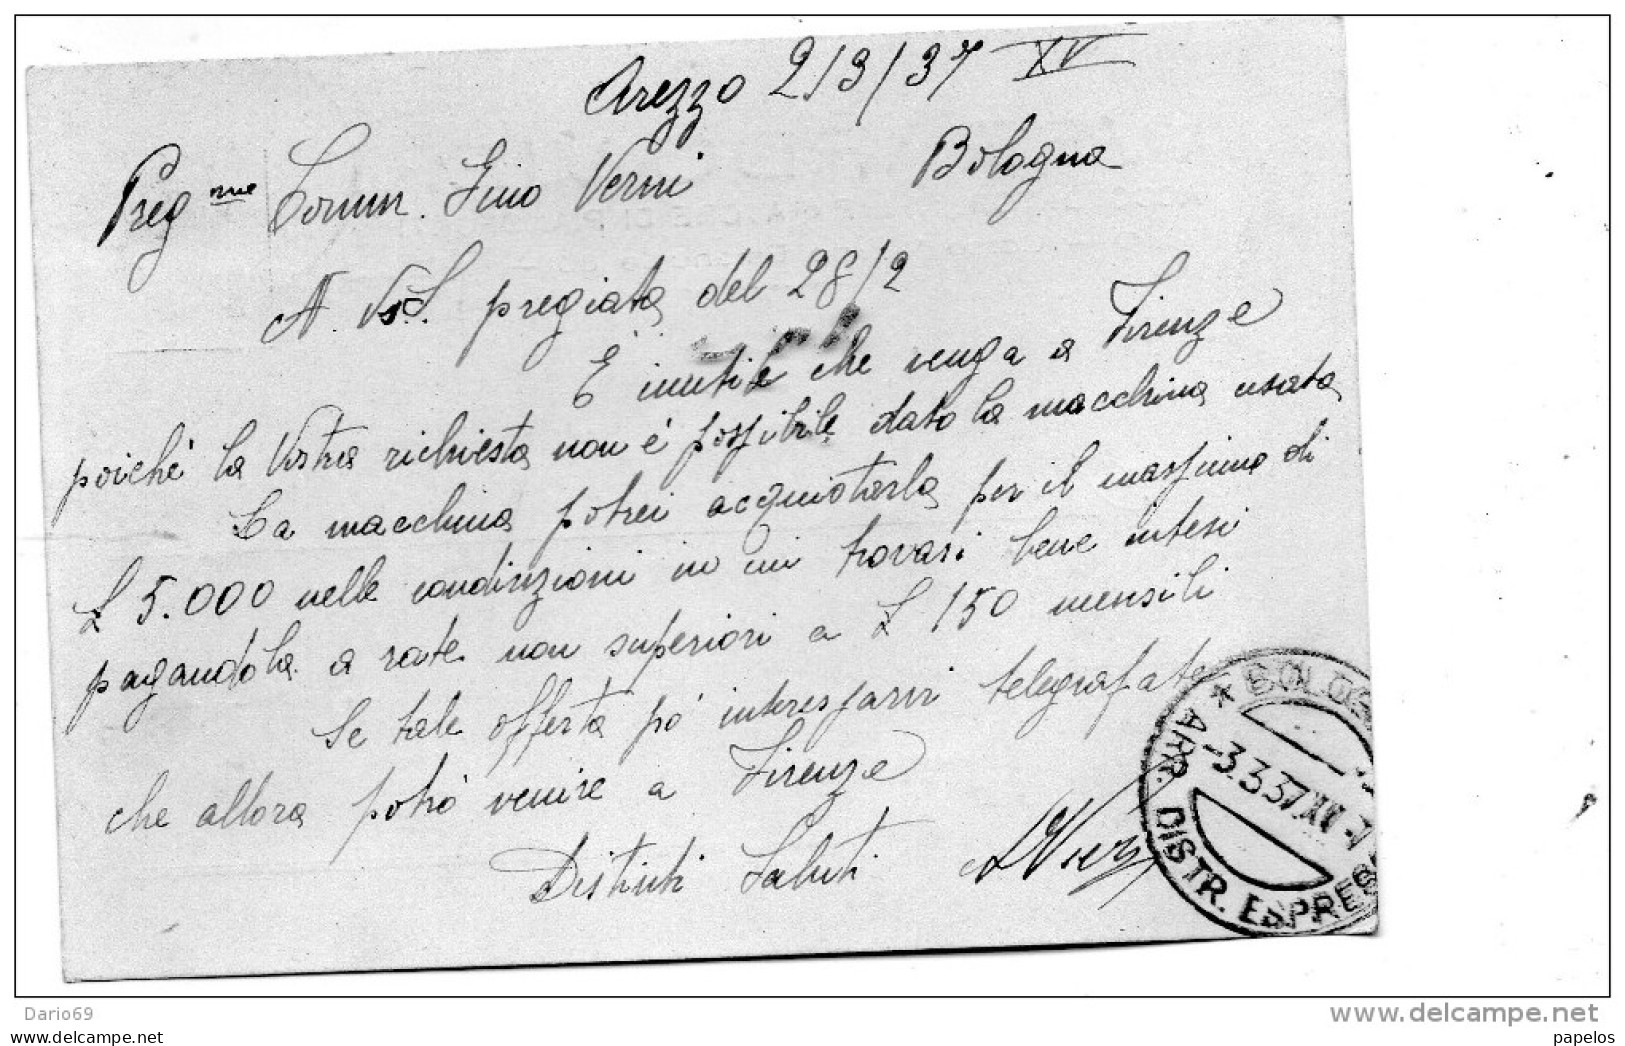 Arezzo 2/3/37 XV
Preg me Comm. Gino Verni Bologna
A. Vs. pregiata del 28/2
È inutile che venga a Firenze
poiché la Vostra richiesta non é possibile dato la macchina usata
La macchina potrei acquistarla per il massimo di
£ 5.000 nelle condinzioni in cui trovasi bene intesi
pagandola a rate non superiori a £ 150 mensili
Se tale offerta pó interessarvi telegrafate
che allora potró venire a Firenze
Distinti Saluti
* BOLOG
ARR. DISTR. ESPRES
-3.3.37.XV-7
Dario69
www.delcampe.net
papelos